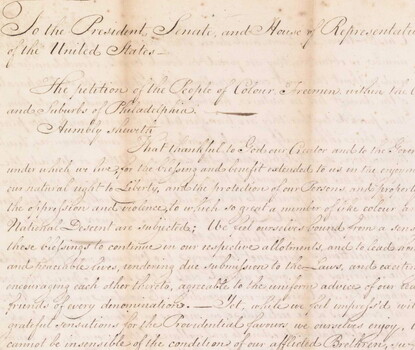 To the President, Senate, and House of Representati
of the United States—
The petition of the People of Colour, Freemen within the
and Suburbs of Philadelphia
Humbly sheweth,
That thankful to God our Creator and to the Gover
under which we live, for the blessing and benefit extended to us in the enjoym
our natural right to Liberty, and the protection of our Persons and property
the oppression and violence, to which so great a number of like colour and
National Descent are subjected; We feel ourselves bound from a sense
these blessings to continue in our respective allotments, and to lead
and peaceable lives, rendering due submission to the Laws, and exciting
encouraging each other thereto, agreeable to the uniform advice of our real
friends of every denomination. — Yet, while we feel impress'd with
grateful sensations for the Providential favours we ourselves enjoy,
cannot be insensible of the conditions of our afflicted Brethren,